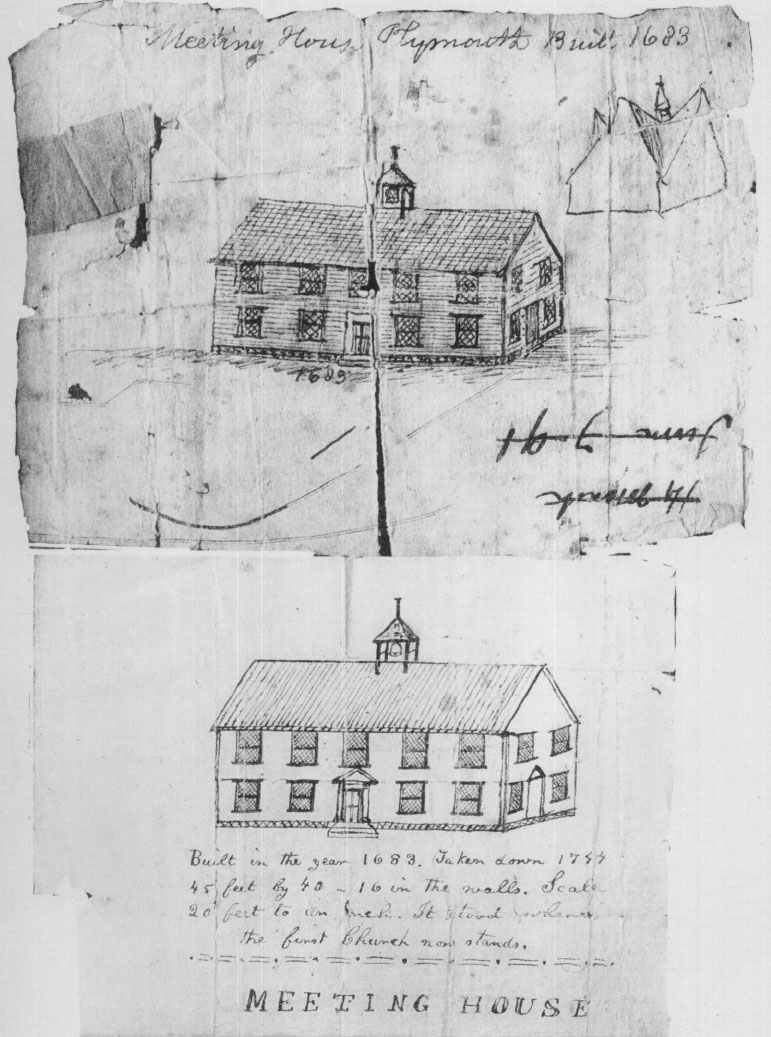 Meeting Hous Plymouth Built 1683
1683
Built in the year 1683. Taken down 1744
45 feet by 40 – 16 in the walls. Scale
20 feet to an Inch. It stood where
the first Church now stands.
MEETING HOUSE